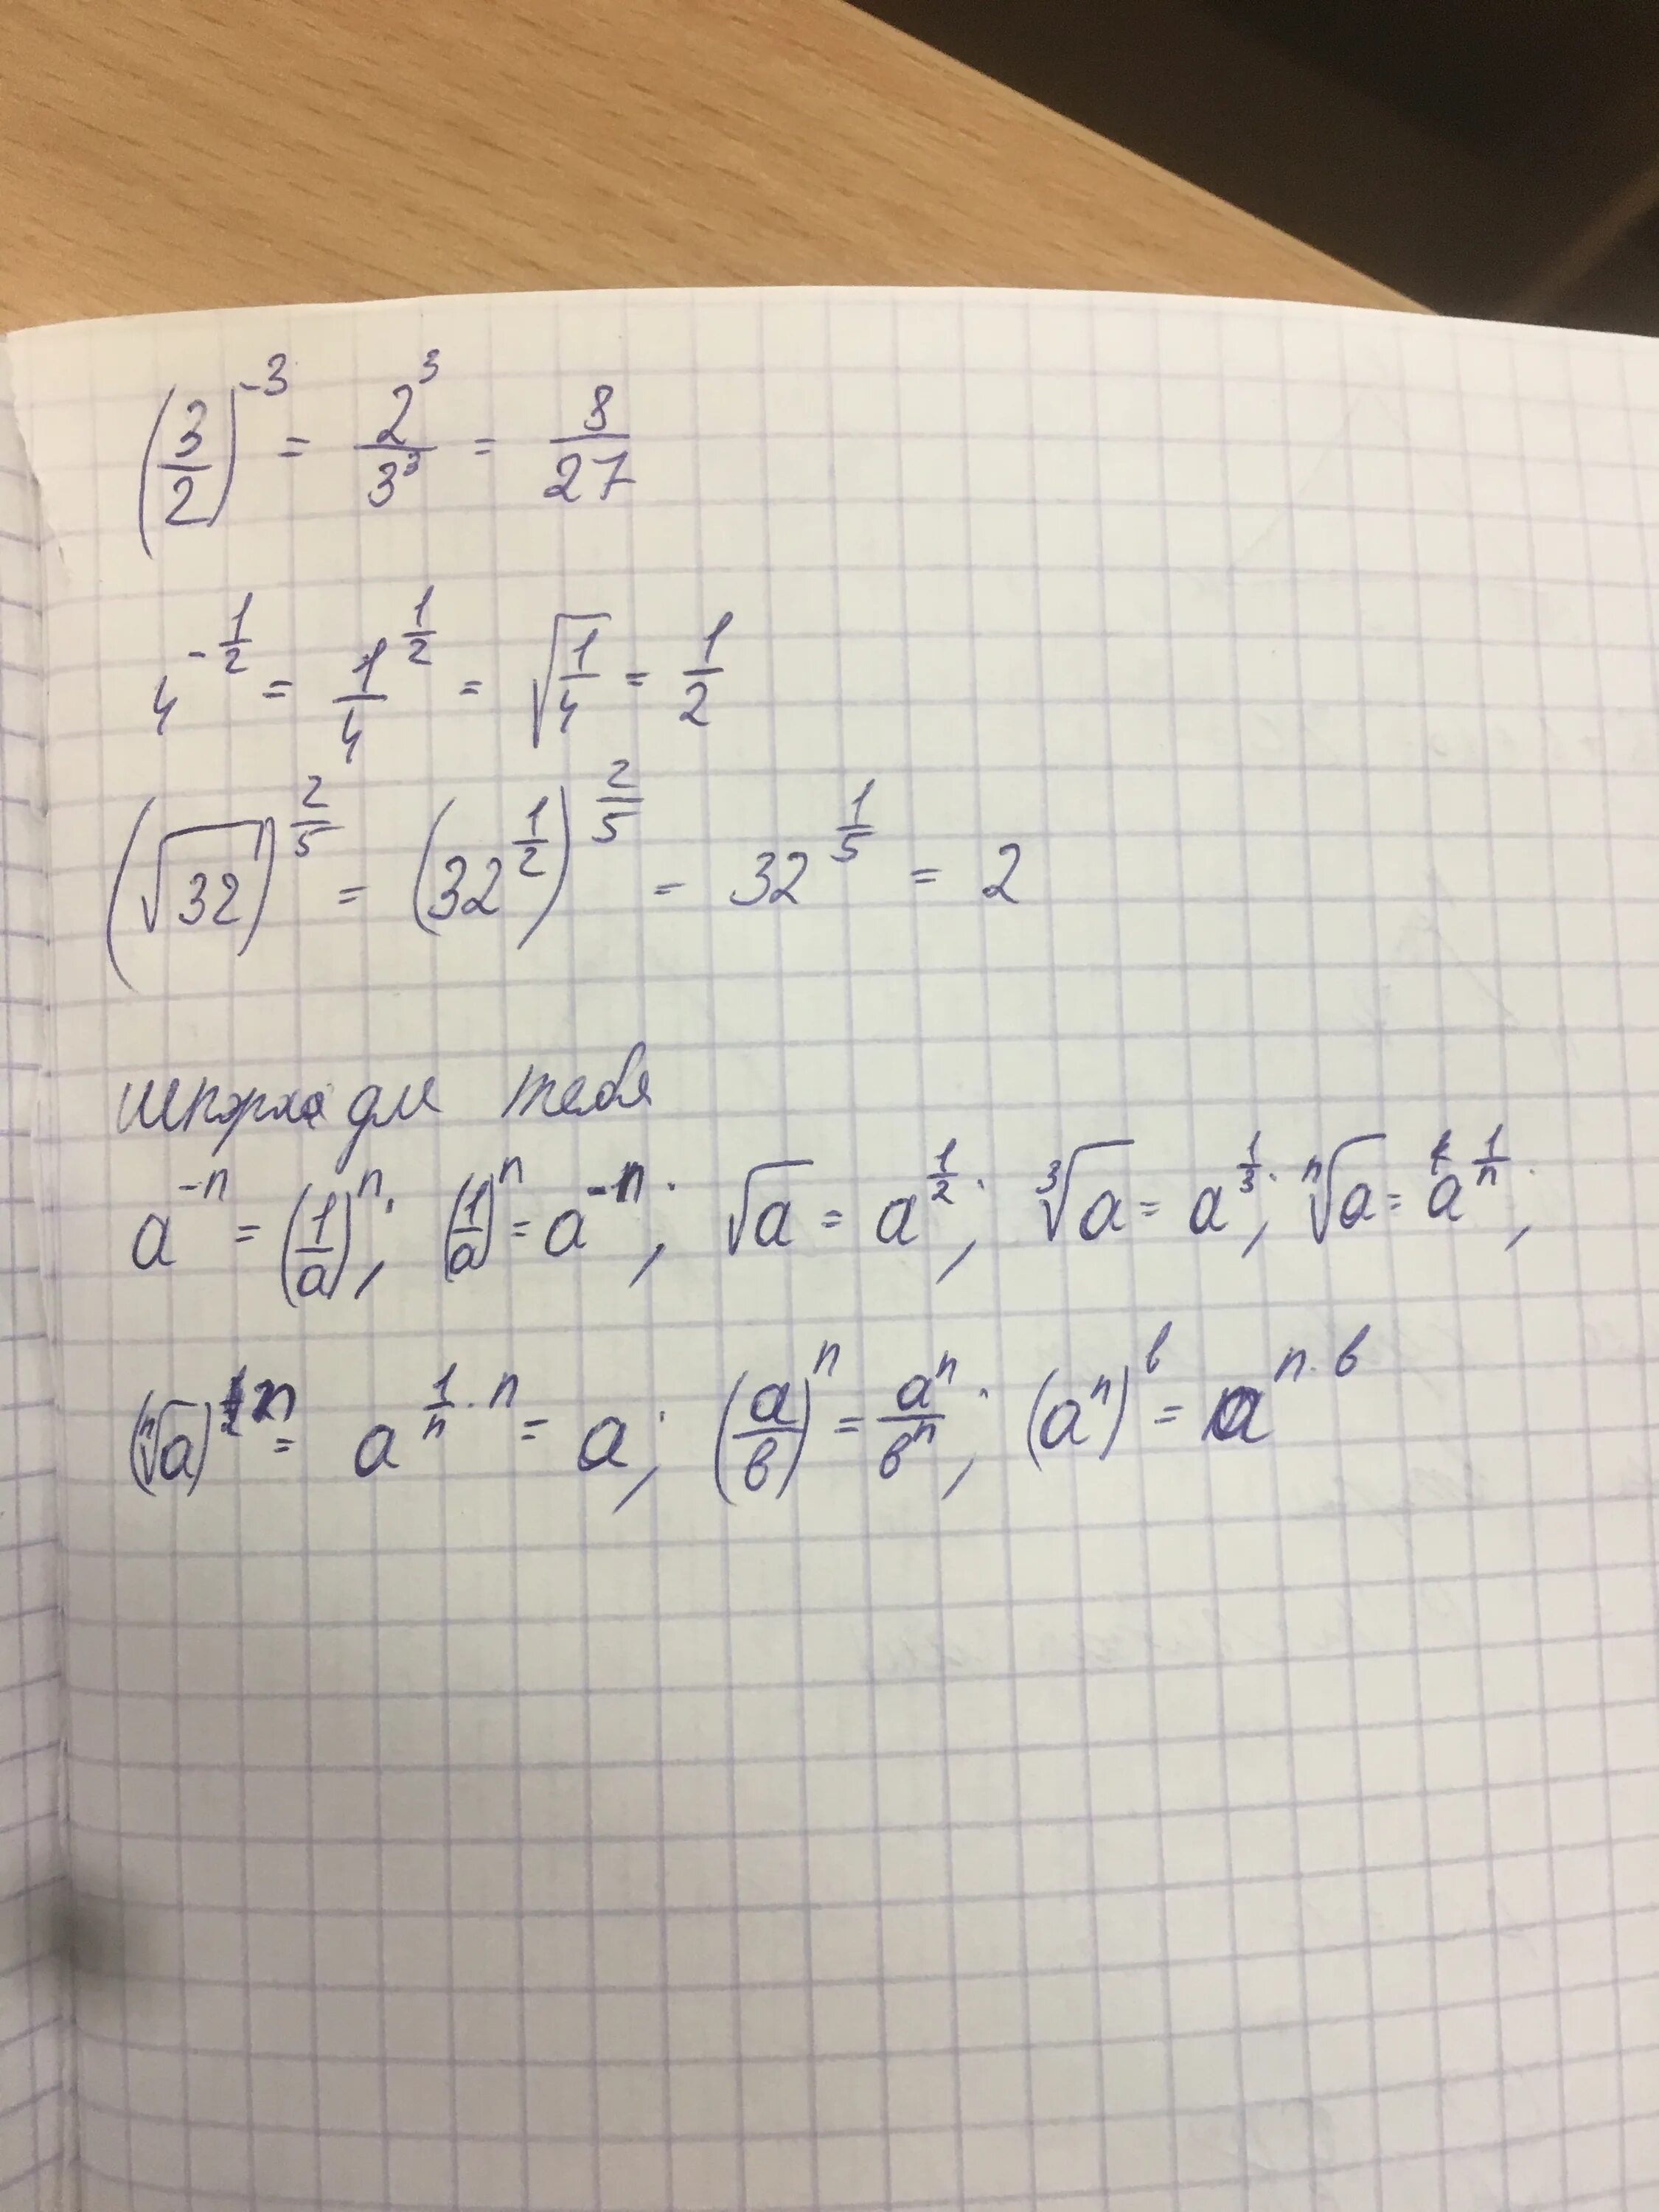 (3/2)^-3 = 2^3/3^3 = 8/27
4^-1/2 = 1/4^1/2 = √1/4 = 1/2
(√32)^2/5 = (32^1/2)^2/5 = 32^1/5 = 2
шпора для тебя
a^-n = (1/a)^n; (1/a)^n = a^-n; √a = a^1/2; ∛a = a^1/3; ⁿ√a = a^1/n;
(ⁿ√a)^n = a^1/n·n = a; (a/b)^n = a^n/b^n; (a^n)^b = a^n·b